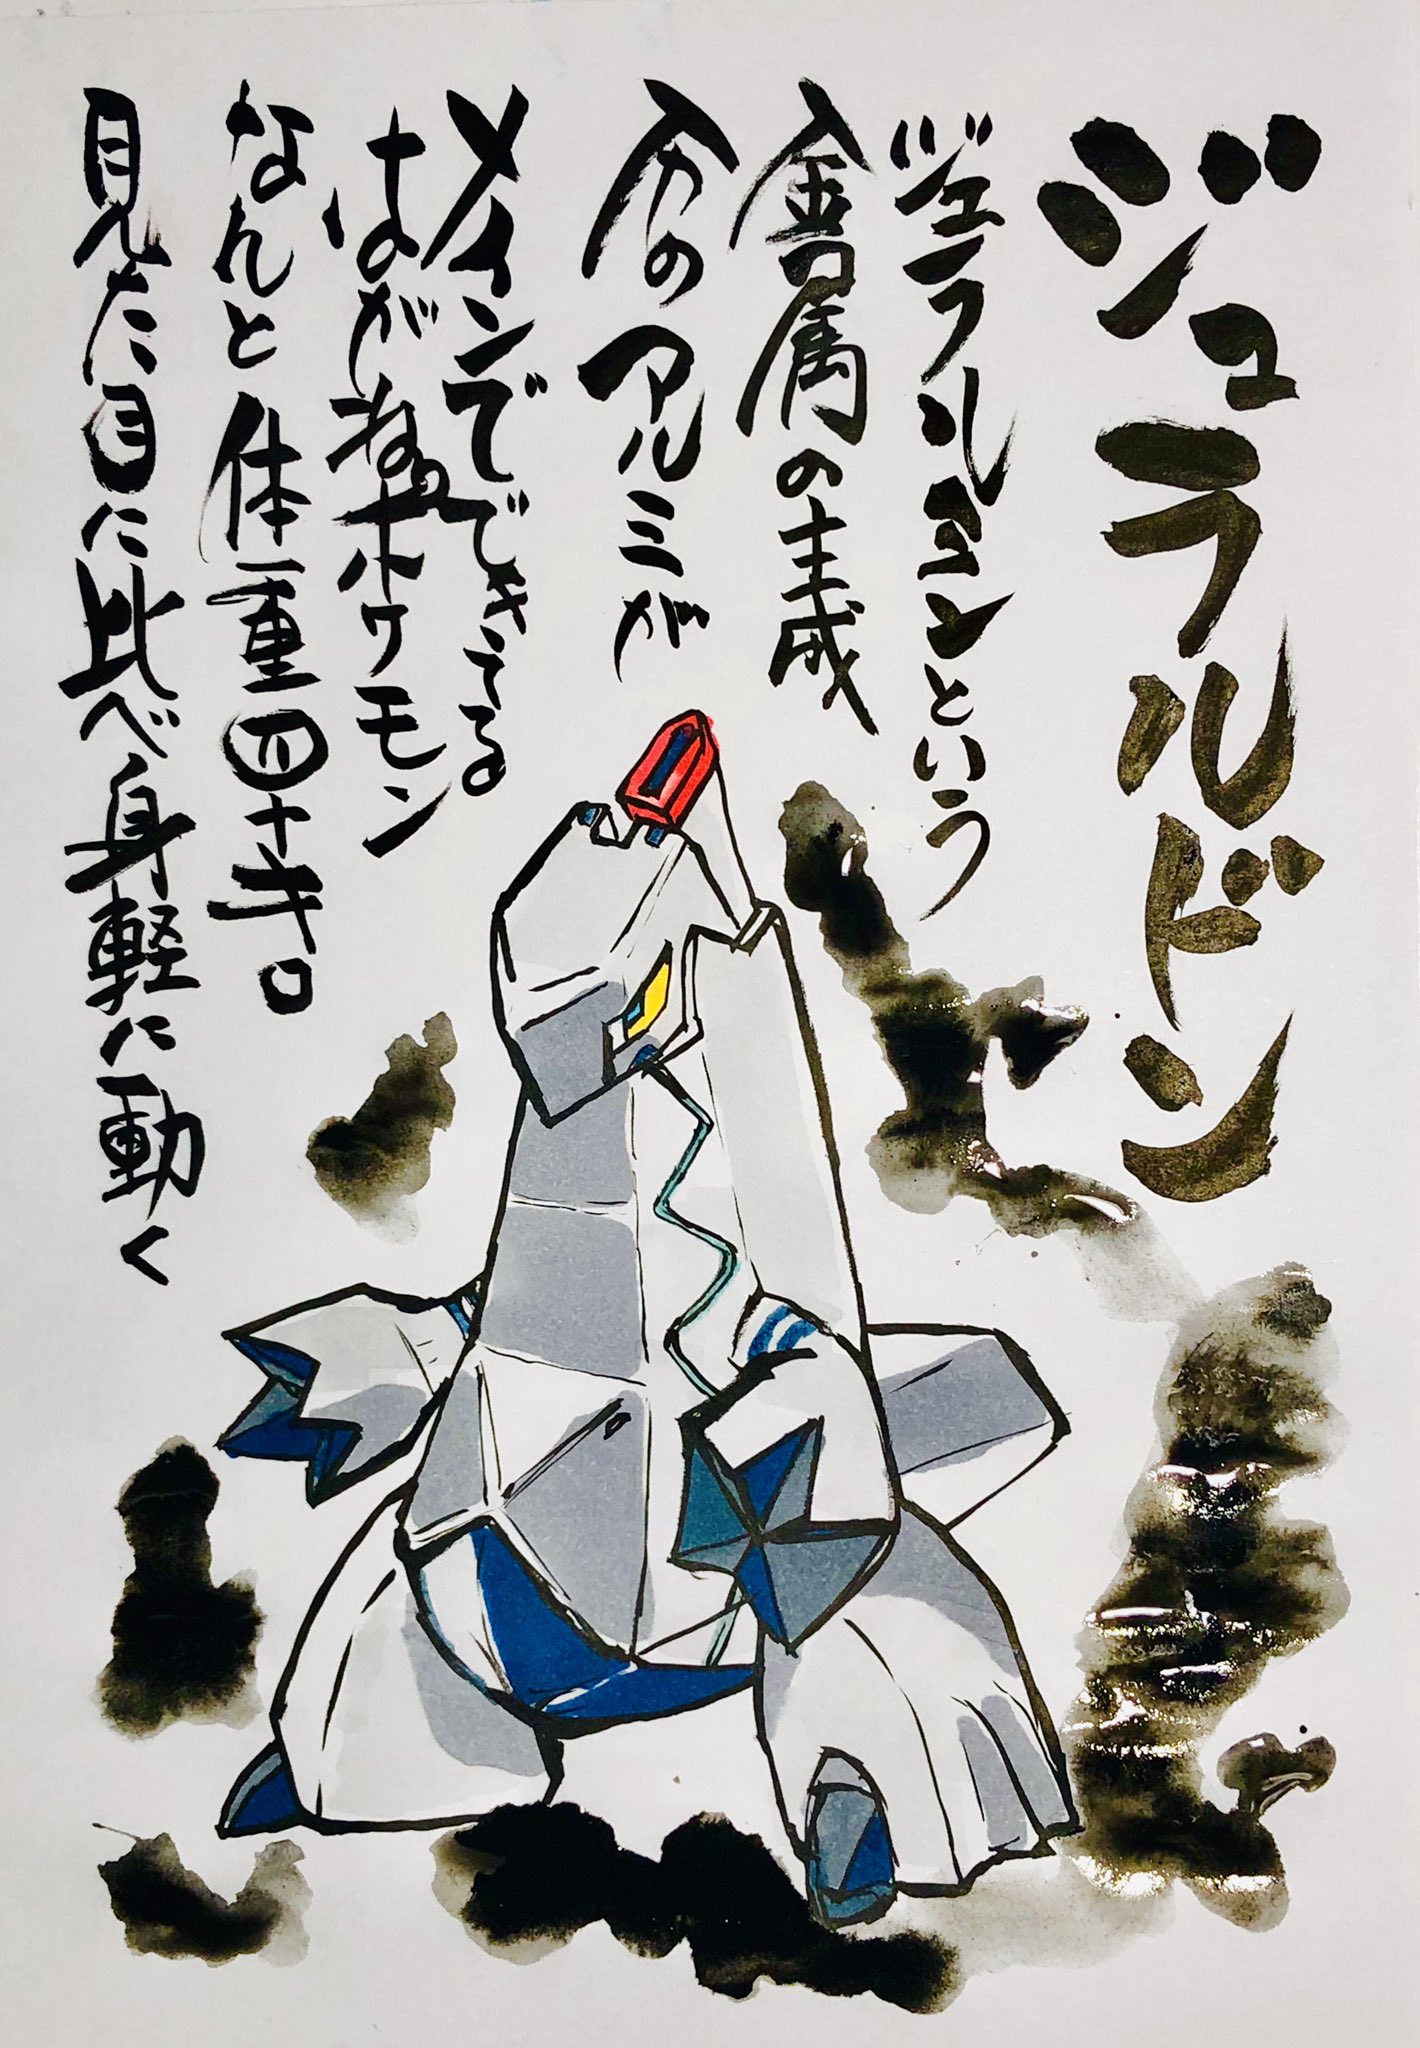 ジュラルドン
ジュラルミンという
金属の主成
分のアルミが
メインでできてる
はがねポケモン
なんと体重四十キロ。
見た目に比べ身軽に動く